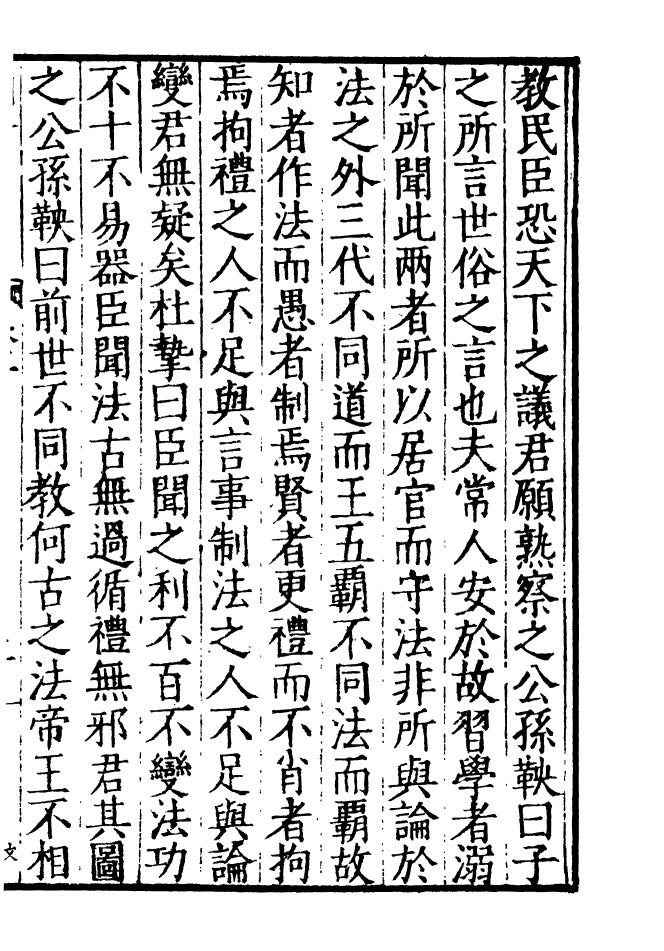 教民臣恐天下之議君願熟察之公孫鞅曰子
之所言世俗之言也夫常人安於故習學者溺
於所聞此两者所以居官而守法非所與論於
法之外三代不同道而王五覇不同法而覇故
知者作法而愚者制焉賢者更禮而不肖者拘
焉拘禮之人不足與言事制法之人不足與論
變君無疑矣杜摯曰臣聞之利不百不變法功
不十不易器臣聞法古無過循禮無邪君其圖
之公孫鞅曰前世不同教何古之法帝王不相